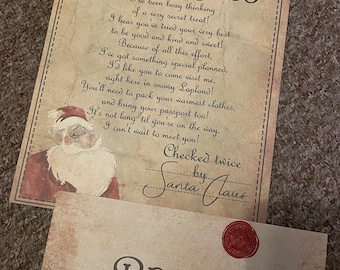 I've been busy thinking
of a very secret treat!
I hear you've tried your very best
to be good and kind and sweet!
Because of all this effort
I've got something special planned,
I'd like you to come visit me,
right here in snowy Lapland!
You'll need to pack your warmest clothes,
and bring your passpost too!
It's not long 'til you're on the way,
I can't wait to meet you!
Checked twice
by
Santa Claus